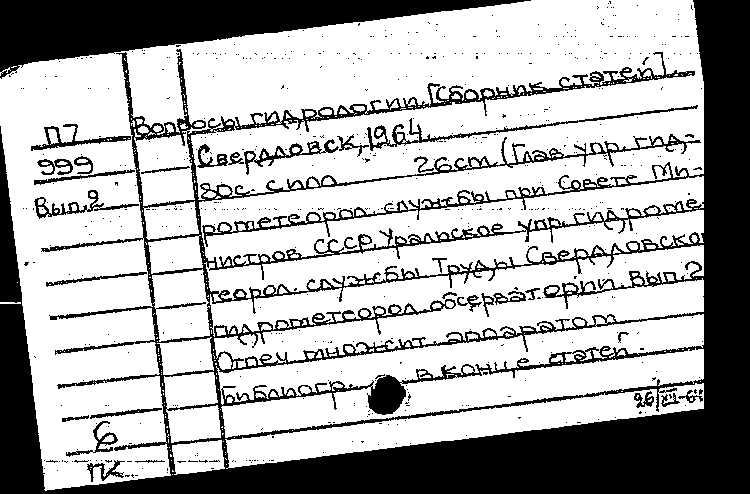 Вопросы гидрологии. [Сборник статей].
П7
999
Вып.2
Свердловск, 1964.
80с. с илл. 26см. (Глав. упр. гид-
рометеорол. службы при Совете Ми-
нистров СССР. Уральское упр. гидроме
теорол. службы Труды Свердловско
гидрометеорол. обсерватории. Вып. 2
Отпеч. множит. аппаратом
Библиогр. в конце статей.
6
ПК